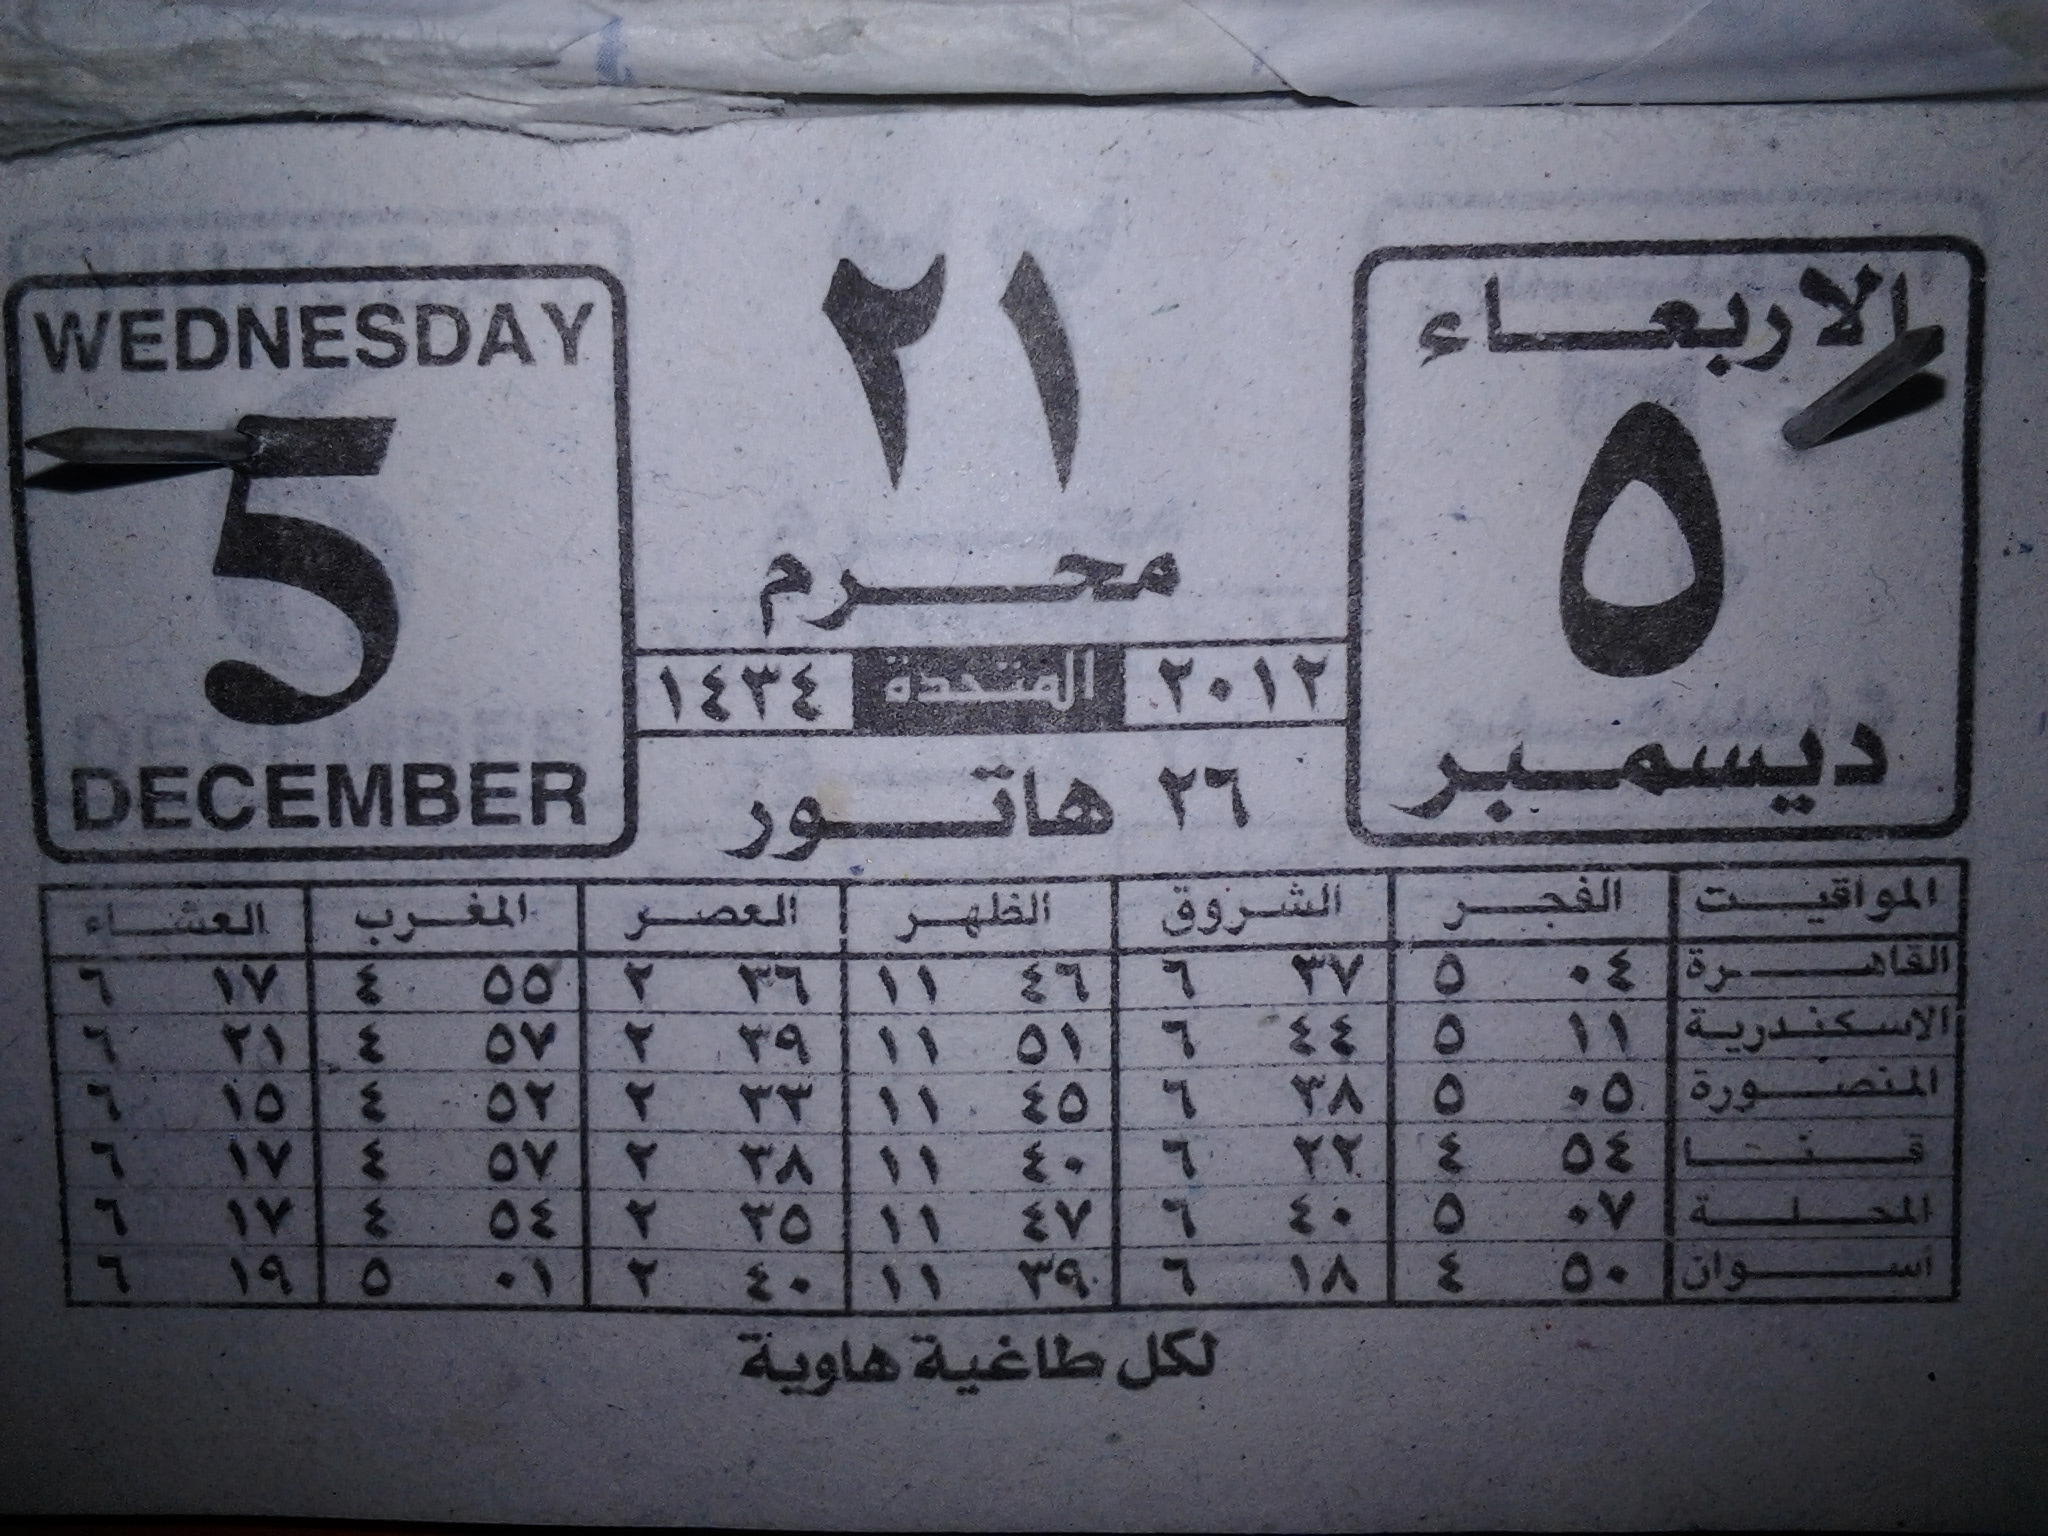 WEDNESDAY
5
DECEMBER
٢١
محرم
١٤٣٤ المتحدة ٢٠١٢
٢٦ هاتور
الاربعاء
٥
ديسمبر
المواقيت الفجر الشروق الظهر العصر المغرب العشاء
القاهرة ٠٤ ٥ ٣٧ ٦ ٤٦ ١١ ٣٦ ٢ ٥٥ ٤ ١٧ ٦
الاسكندرية ١١ ٥ ٤٤ ٦ ٥١ ١١ ٣٩ ٢ ٥٧ ٤ ٢١ ٦
المنصورة ٠٥ ٥ ٣٨ ٦ ٤٥ ١١ ٣٣ ٢ ٥٢ ٤ ١٥ ٦
قنا ٥٤ ٤ ٢٢ ٦ ٤٠ ١١ ٣٨ ٢ ٥٧ ٤ ١٧ ٦
المحلة ٠٧ ٥ ٤٠ ٦ ٤٧ ١١ ٣٥ ٢ ٥٤ ٤ ١٧ ٦
اسوان ٥٠ ٤ ١٨ ٦ ٣٩ ١١ ٤٠ ٢ ٠١ ٥ ١٩ ٦
لكل طاغية هاوية